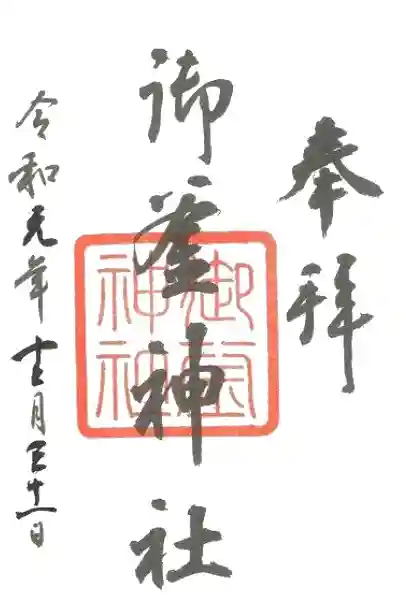 奉拝
御釜神社
御釜神社
令和元年十二月三十一日